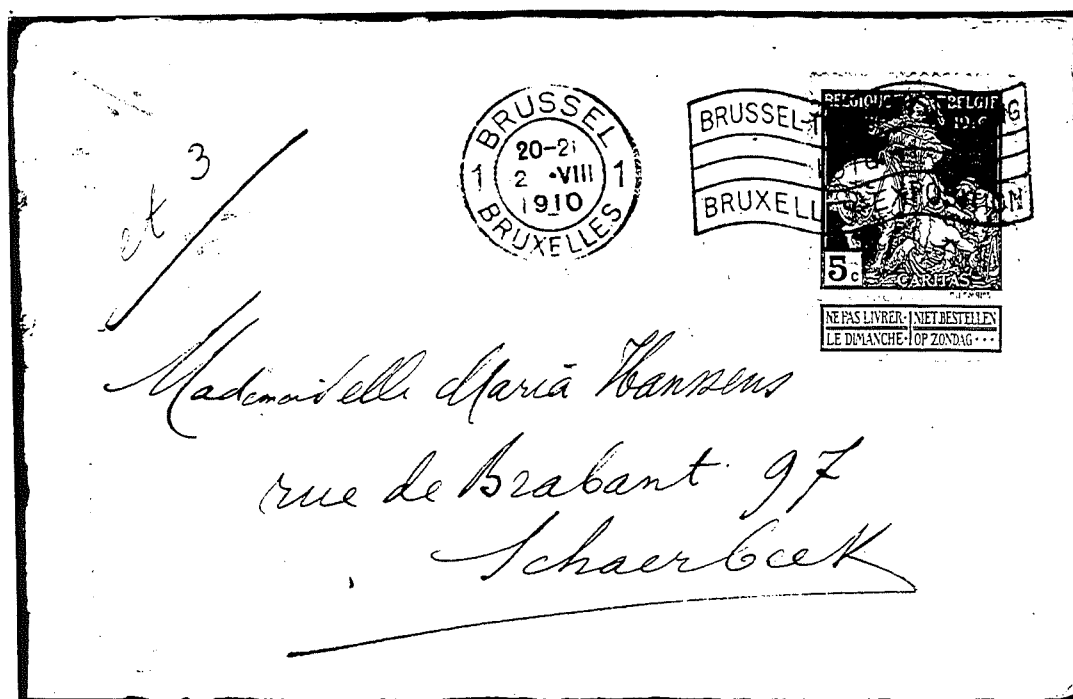 BRUSSEL
1 20-21 1
2 •VIII
1910
BRUXELLES
BRUSSEL-T
BRUXELL
BELGIQUE BELGIE
1910
5c
CARITAS
NE PAS LIVRER· NIET BESTELLEN
LE DIMANCHE· OP ZONDAG···
et 3
Mademoiselle Maria Hanssens
rue de Brabant 97
Schaerbeek